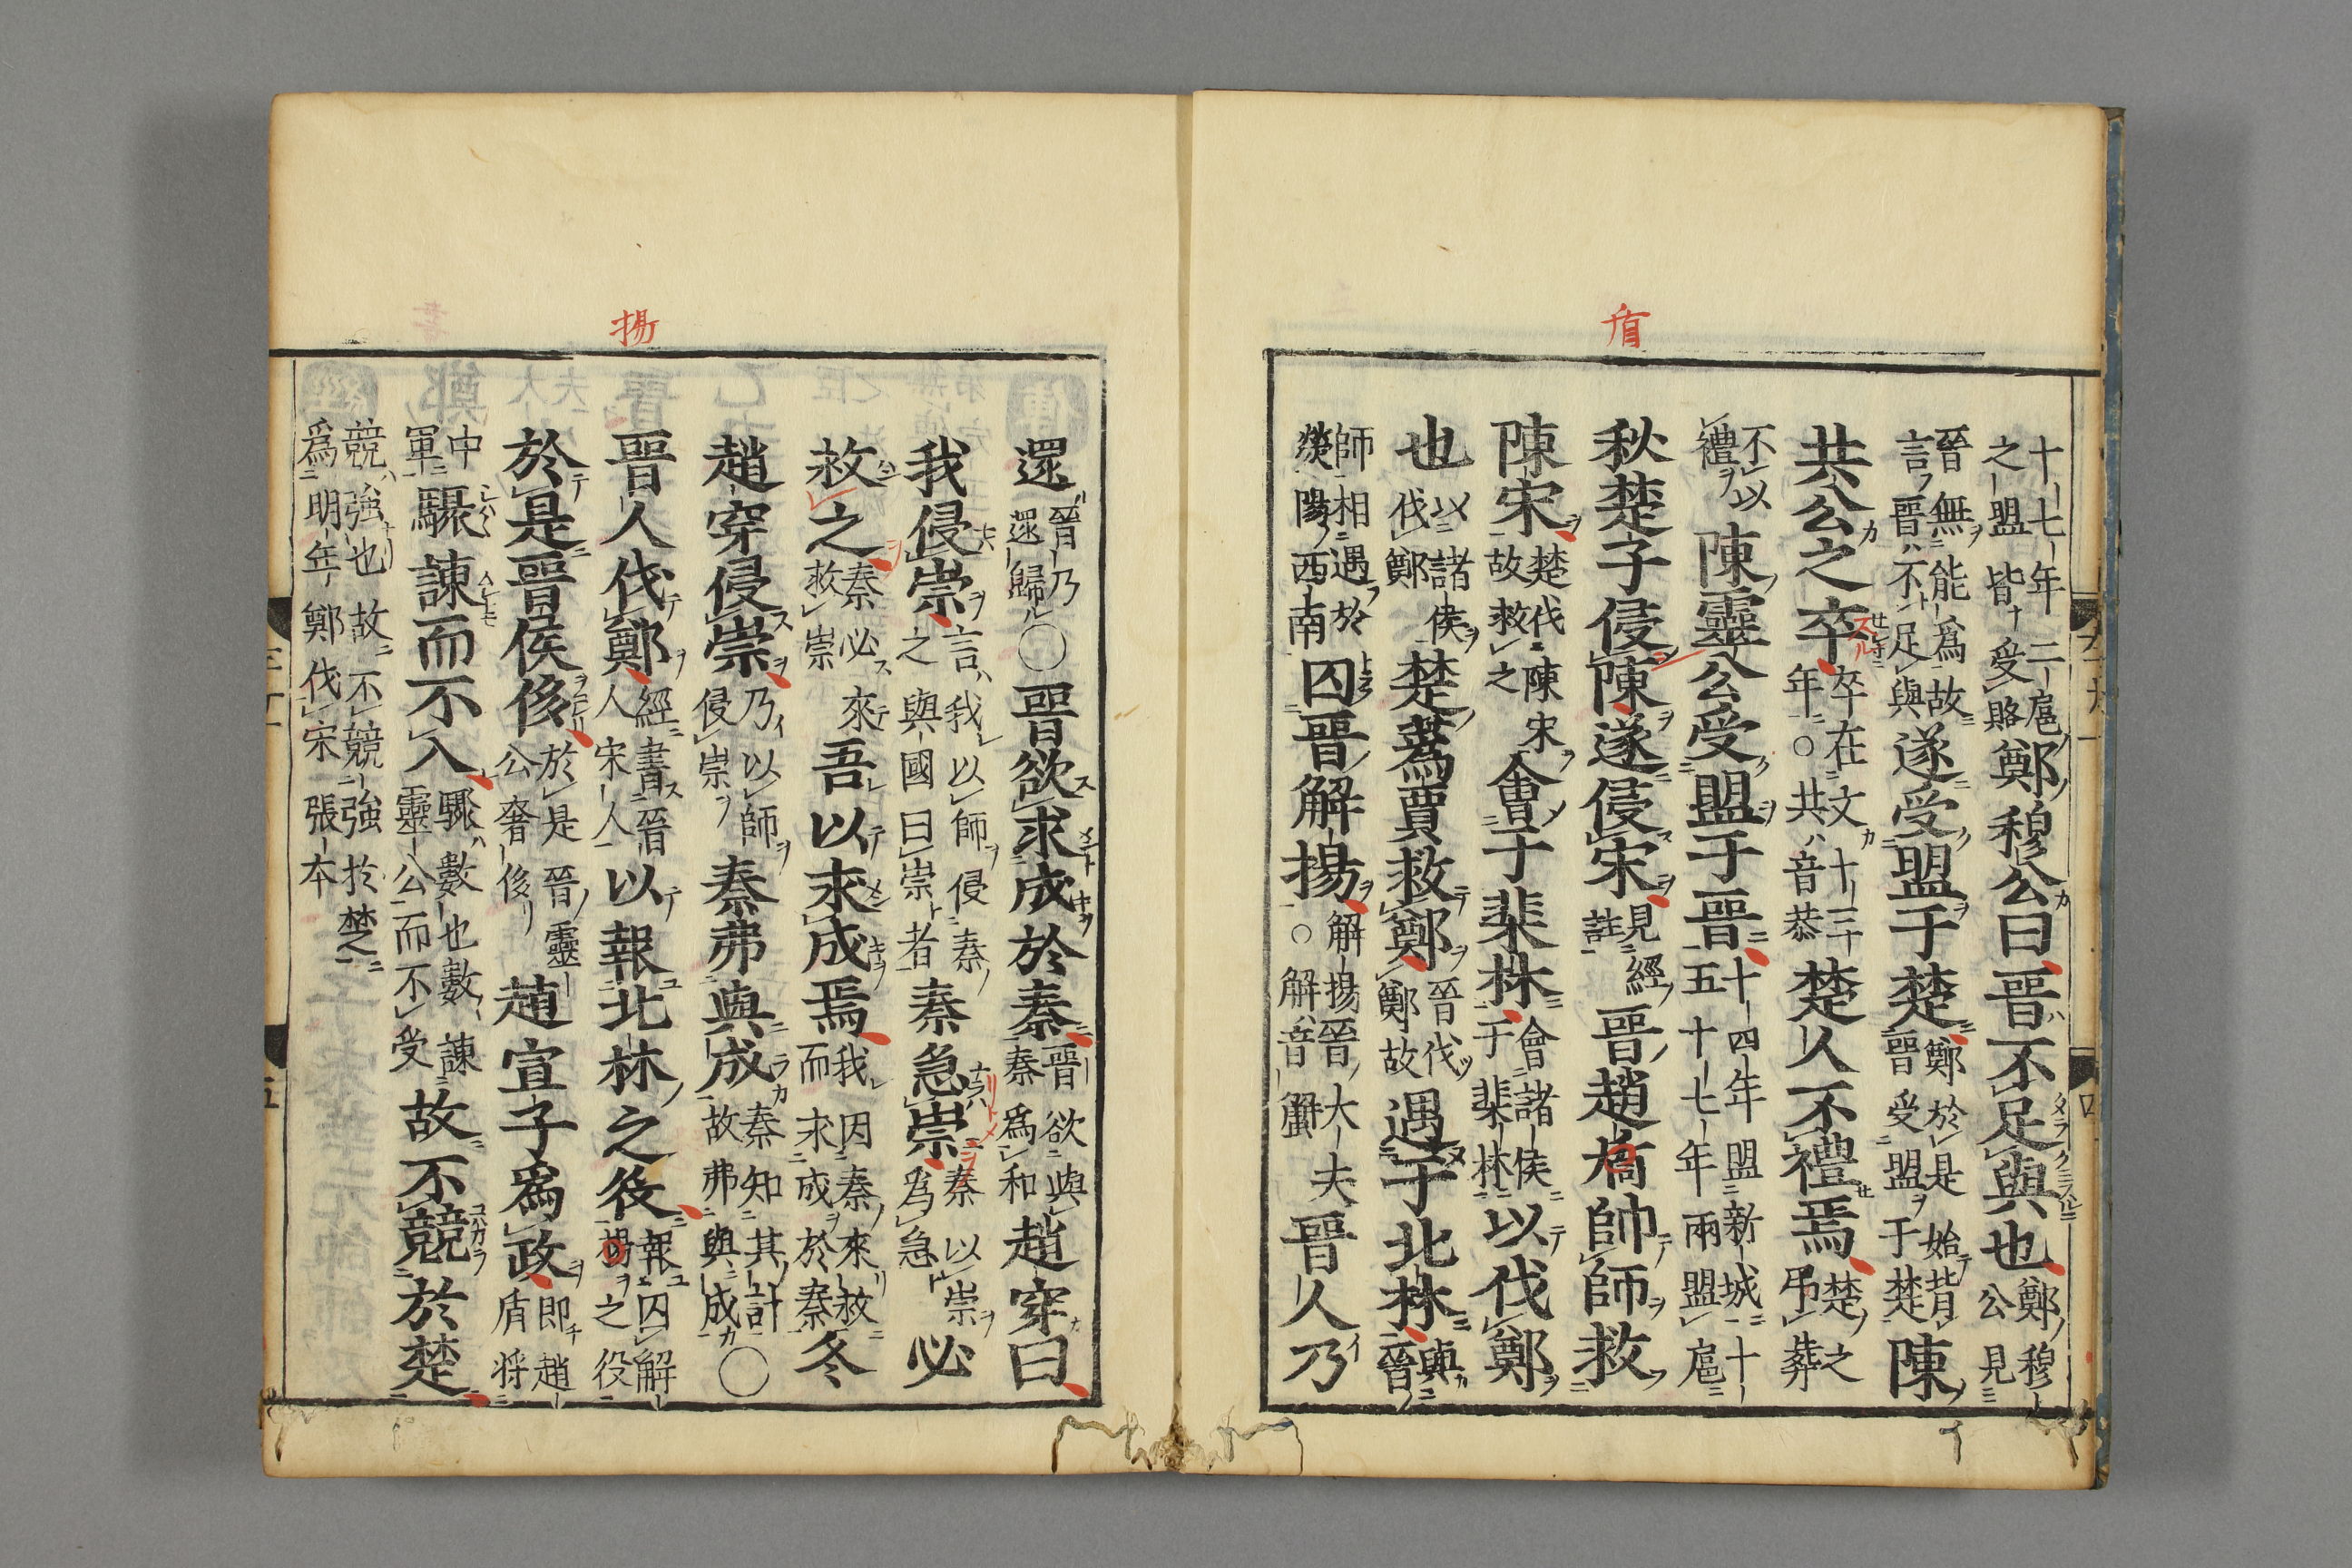 盾
十七年二扈之盟皆受賂鄭穆公曰晉不足與也鄭穆公見
晉無能爲故言晉不足與遂受盟于楚鄭於是始背晉受盟于楚陳
共公之卒卒在文十三年○共音恭楚人不禮焉楚之弔葬
不以禮陳靈公受盟于晉十四年盟新城十五十七年兩盟扈
秋楚子侵陳遂侵宋見經註晉趙穿帥師救
陳宋楚伐陳宋故救之會于棐林會諸侯于棐林以伐鄭
也以諸侯伐鄭楚蒍賈救鄭晉伐鄭故遇于北林與晉
師相遇於滎陽西南囚晉解揚解揚晉大夫○解音蟹晉人乃
揚
還晉乃還歸○晉欲求成於秦晉欲與秦爲和趙穿曰
我侵崇言我以師侵秦之與國曰崇者秦急崇秦以崇爲急必
救之秦必來救崇吾以求成焉我因秦來救而求成於秦冬
趙穿侵崇乃以師侵崇秦弗與成秦知其計故弗與成○
晉人伐鄭經書晉人宋人以報北林之役報囚解揚之役
於是晉侯侈於是晉靈公奢侈趙宣子爲政即趙盾將
中軍驟諫而不入驟數也數諫靈公而不受故不競於楚
競強也故不競強於楚爲明年鄭伐宋張本